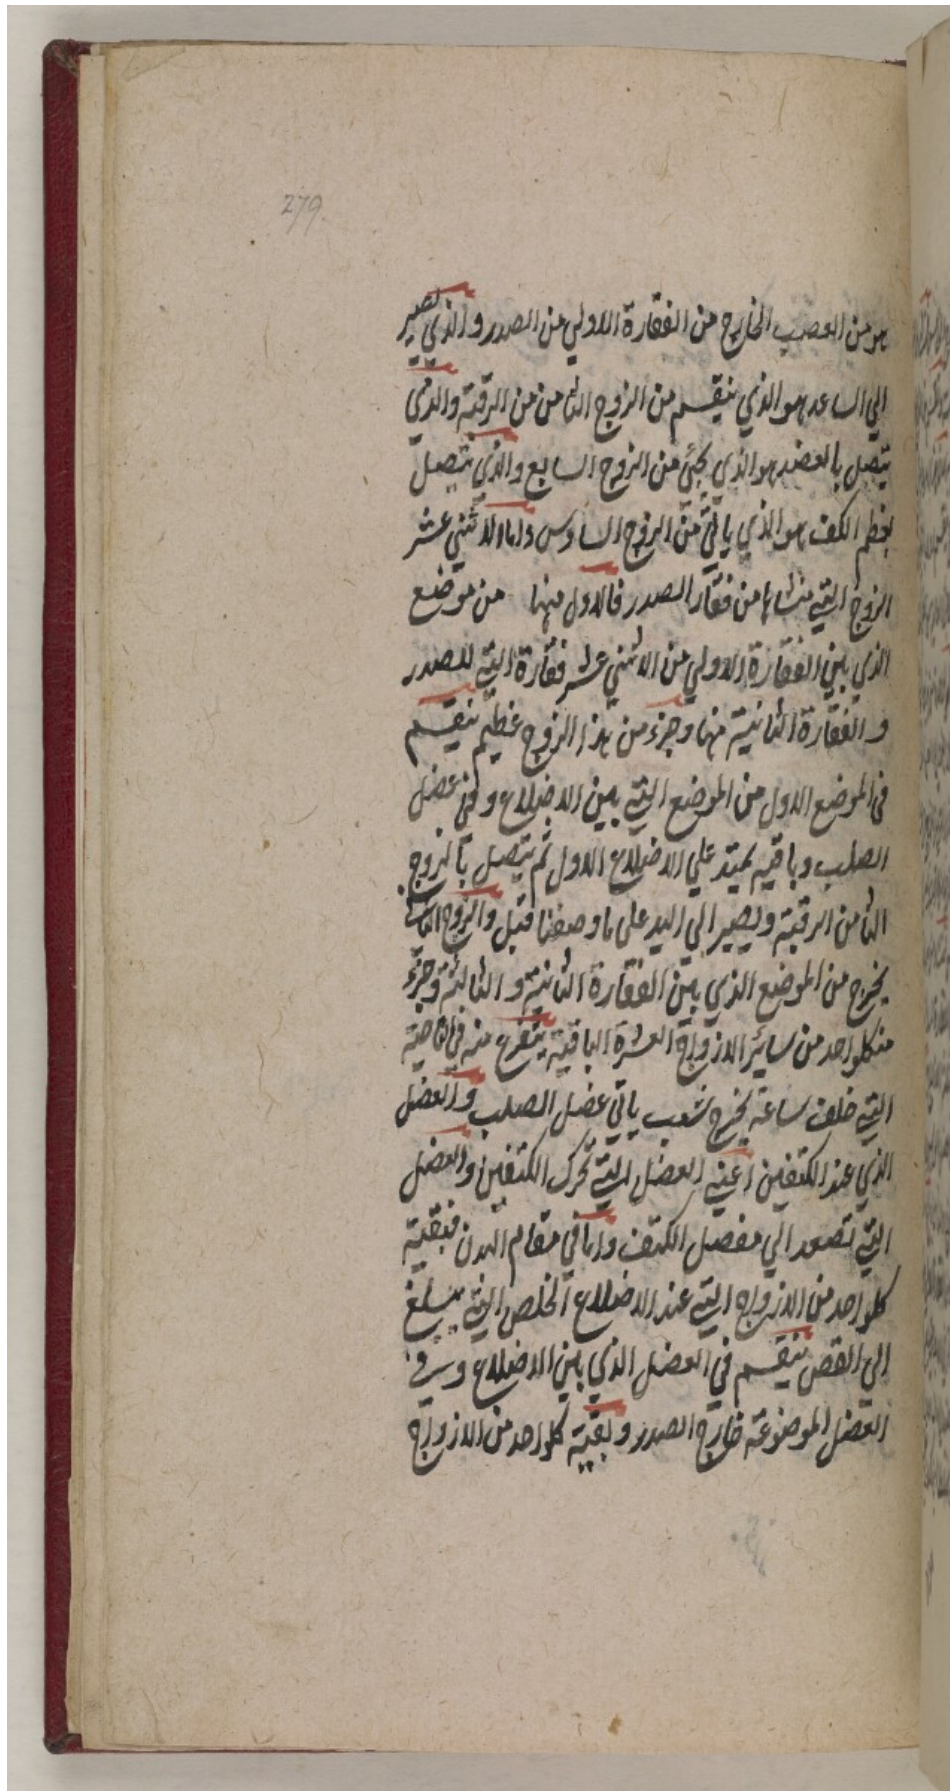 279
هو من العصب الخارج من الفقارة الاولي من الصدر والذي يصير
الي الساعد هو الذي ينقسم من الزوج الثامن من الرقبة والذي
يتصل بالعضد هو الذي يجئ من الزوج السابع والذي يتصل
بعظم الكتف هو الذي ياتي من الزوج السادس واما الاثني عشر
الزوج التي منشاها من فقار الصدر فالاول منها من موضع
الذي بين الفقارة الاولي من الاثني عشر فقارة التي للصدر
و الفقارة الثانية منها وجزء من هذا الزوج عظيم ينقسم
في الموضع الاول من الموضع التي بين الاضلاع وفي عضل
الصلب وباقيه يمتد علي الاضلاع الاول ثم يتصل بالزوج
الثامن الرقبة ويصير الي اليد علي ما وصفنا قبل والزوج الثاني
يخرج من الموضع الذي بين الفقارة الثانية و الثالثة وجزء
منكلواحد من سائر الازواج العشرة الباقية يتفرع منه في الناحية
التي خلف ساعة يخرج شعب ياتي عضل الصلب والعضل
الذي عند الكتفين اعني العضل التي تحرك الكتفين والعضل
التي تصعد الي مفصل الكتف واما في مقام البدن فبقية
كلواحد من الازواج التي عند الاضلاع الخلص التي يبلغ
الي القص ينقسم في العضل الذي بين الاضلاع وفي
العضل الموضوعة خارج الصدر وبقية كلواحد من الازواج